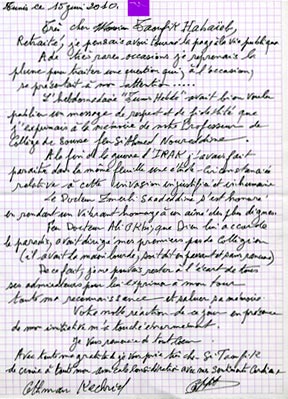 Tunis ce 15 juin 2010.
Très cher Monsieur Taoufik Habaieb,
Retraité, je pensais avoir tourné la page de la vie publique
A de très rares occasions je reprenais la
plume pour traiter une question qui, à l'occasion,
se présentait à mon attention.....
L'hebdomadaire "Tunis Hebdo" avait bien voulu
publier un message de respect et de fidélité que
j'exprimais à la mémoire de notre Professeur de
Collège de Sousse feu Si Ahmed Noureddine.
A la fin de la guerre d'IRAK, j'avais fait
paraître dans la même feuille une étude circonstanciée
relative à cette invasion injustifiée et inhumaine
Le Docteur Saadeddine s'est honoré
en rendant un vibrant hommage à un aîné des plus dignes
Feu Docteur Ali que Dieu lui accorde
le paradis, avait dirigé mes premiers pas de Collégien
(il avait la main lourde, soit dit en passant et sans rancune)
De ce fait, je ne pouvais rester à l'écart de tous
ses admirateurs pour lui exprimer à mon tour
toute ma reconnaissance et saluer sa mémoire.
Votre noble réaction de ce jour en présence
de mon initiative m'a touché énormément.
Je vous remercie de tout cœur.
Avec toute ma gratitude je vous prie très cher Si Taoufik
de croire à toute mon considération avec mes sentiments Cordiaux
Othman